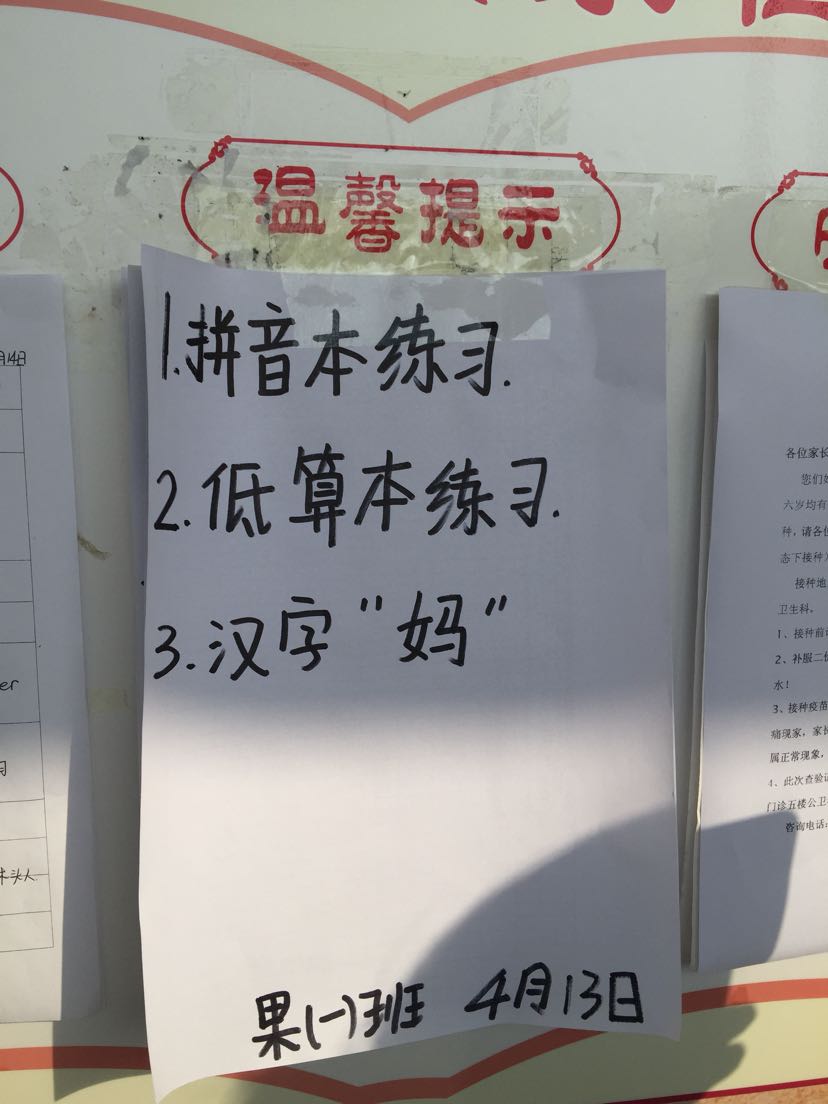 温馨提示
1.拼音本练习.
2.低算本练习.
3.汉字"妈"
果(一)班 4月13日
月14日
er
木头人.
各位家长
您们好
六岁均有
种，请各位
态下接种
接种地
卫生科。
1、接种前
2、补服二
水！
3、接种疫苗
痛现象，家长
属正常现象，
4、此次查验
门诊五楼公卫
咨询电话：